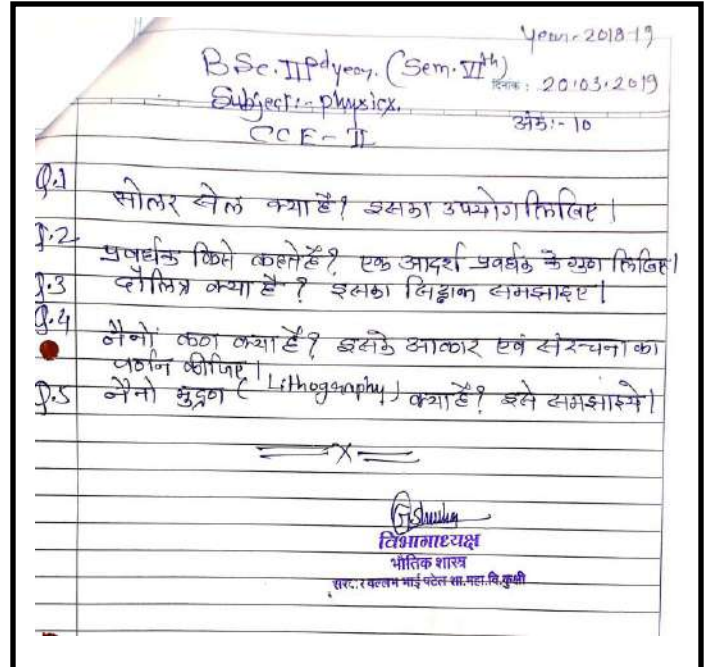 Year:- 2018-19
B.Sc. IIIrd year. (Sem. VIth)
दिनांक : 20.03.2019
Subject:- physicx.
अंक:- 10
CCE-II
Q.1 सोलर सेल क्या है? इसका उपयोग लिखिए।
Q.2 प्रवर्धक किसे कहते है? एक आदर्श प्रवर्धक के गुण लिखिए।
Q.3 दौलित्र क्या है? इसका सिद्धांत समझाइए।
Q.4 नैनों कण क्या है? इसके आकार एवं संरचना का
वर्णन कीजिए।
Q.5 नैनो मुद्रण (Lithography) क्या है? इसे समझाइये।
X
विभागाध्यक्ष
भौतिक शास्त्र
वल्लभ भाई पटेल शा.महा.वि.कुक्षी